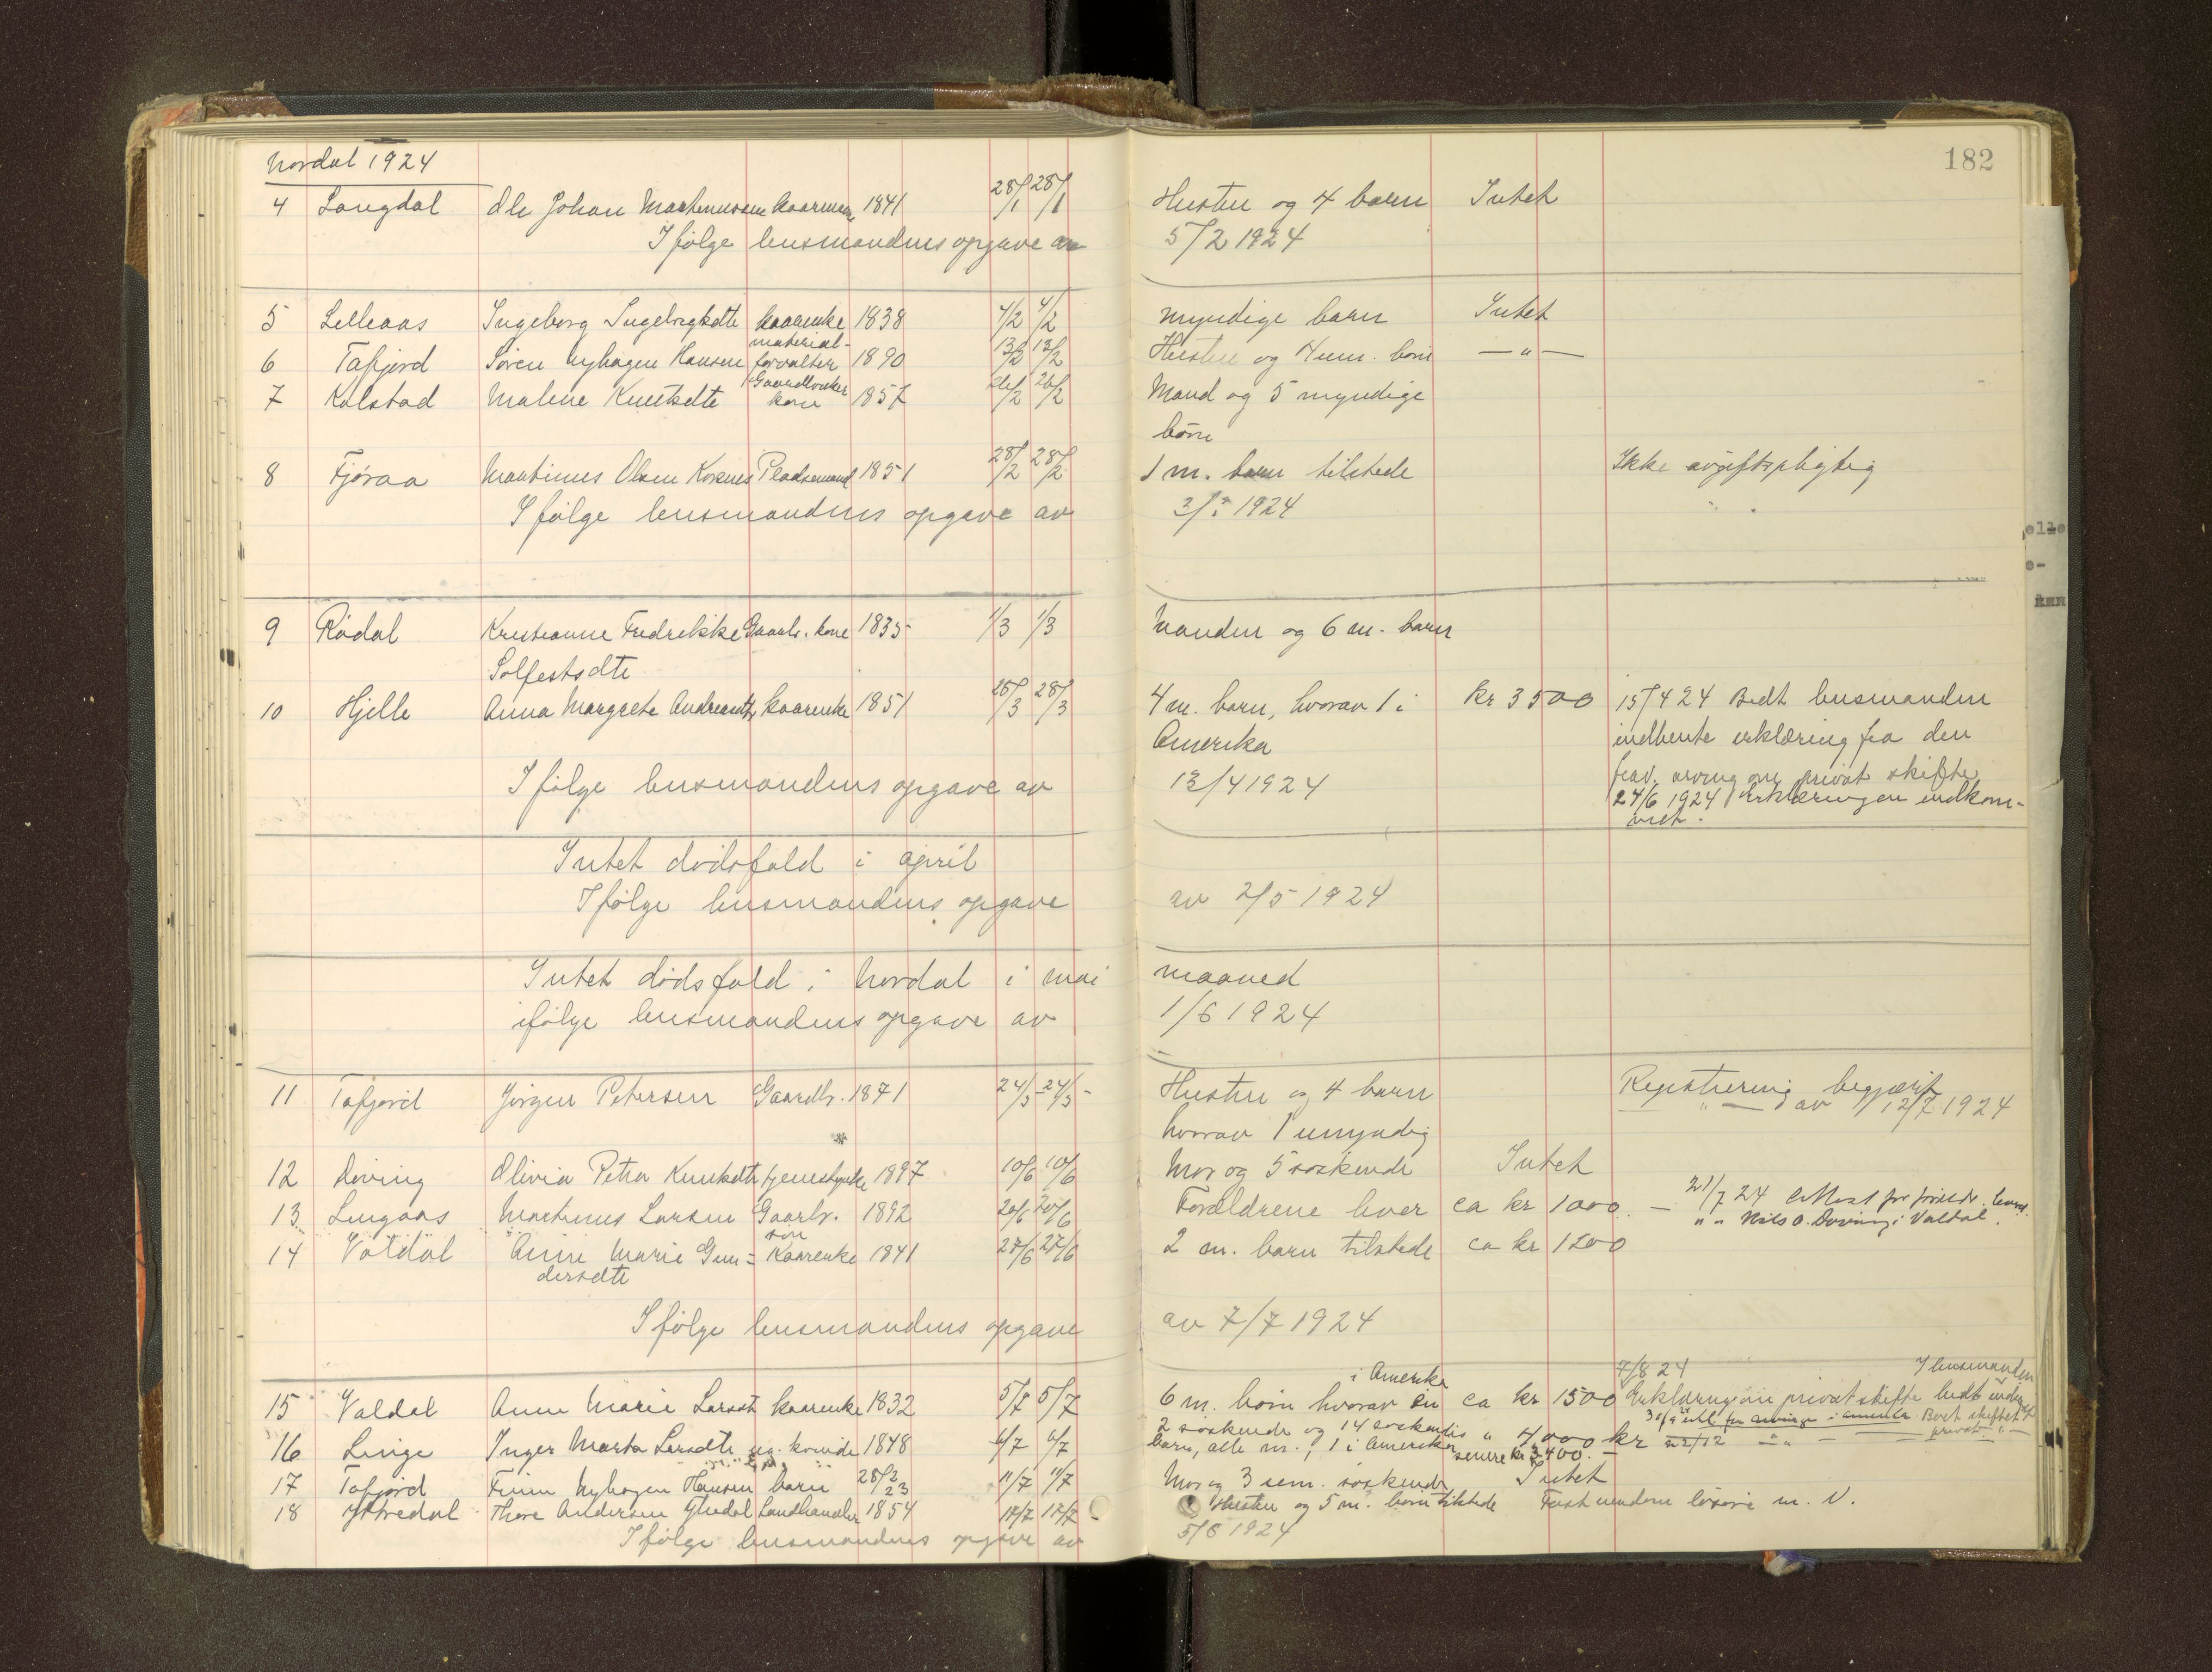 Nordal 1924
182
4 Langdal Ole Johan Martinussen kaarmann 1841 28/1 28/1 Hustru og 4 barn Intet
Ifølge lensmandens opgave av 5/2 1924
5 Lilleaas Ingeborg Ingebrigtsdtr kaarenke 1838 4/2 4/2 myndige barn Intet
material-
6 Tafjord Søren Nyhagen Hansen forvalter 1890 13/2 13/2 Hustru og 4 um. børn — " —
Gaardbruker
7 Kolstad Malene Knutsdtr kone 1857 26/2 26/2 Mand og 5 myndige
børn
8 Fjøraa Martinus Olsen Korsnes Pladsemand 1851 28/2 28/2 1 m. barn tilstede Ikke avgiftspligtig
Ifølge lensmandens opgave av 3/3 1924
9 Rødal Kristianne Fredrikke Gaardbr. kone 1835 1/3 1/3 Manden og 6 m. barn
Solfestsdtr
10 Hjelle Anna Margrete Andreasdtr kaarenke 1851 28/3 28/3 4 m. barn, hvorav 1 i kr 3500 15/4 24 Bedt lensmanden
Amerika indhente erklæring fra den
frav. arving om privat skifte
Ifølge lensmandens opgave av 13/4 1924
24/6 1924 Erklæringen indkom-
met.
Intet dødsfald i april
Ifølge lensmandens opgave av 2/5 1924
Intet dødsfald i Nordal i mai maaned
ifølge lensmandens opgave av 1/6 1924
11 Tafjord Jørgen Petersen Gaardbr. 1871 24/5 24/5 Hustru og 4 barn Registrering begjært
hvorav 1 umyndig " — av 12/7 1924
12 Døving Olivia Petra Knutsdtr tjenestepike 1897 10/6 10/6 Mor og 5 søskende Intet
13 Lingaas Martinus Larsen Gaardbr. 1892 20/6 20/6 Forældrene lever ca kr 1000. — 21/7 24 Attest for
søn " " Nils O. Døving i Valdal.
14 Valdal Anne Marie Gun= Kaarenke 1841 27/6 27/6 2 m. barn tilstede ca kr 1200
dersdtr
Ifølge lensmandens opgave av 7/7 1924
i Amerika 7/8 24 lensmanden
15 Valdal Anne Marie Larsdt kaarenke 1832 5/7 5/7 6 m. børn hvorav en ca kr 1500 Erklæring om privat skifte bedt
16 Linge Inger Marta Larsdtr ug. kvinde 1848 6/7 6/7 2 søskende og 14 søskendes " 4000 kr
barn, alle m., 1 i Amerika senere kr 3400. —
17 Tafjord Finn Nyhagen Hansen barn 28/2 23 11/7 11/7 Mor og 3 um. søskende Intet
18 Yttredal Thore Andersen Yttredal Landhandler 1854 17/7 17/7 Hustru og 5 m. børn tilstede Fast eiendom løsøre m. v.
Ifølge lensmandens opgave av 5/8 1924